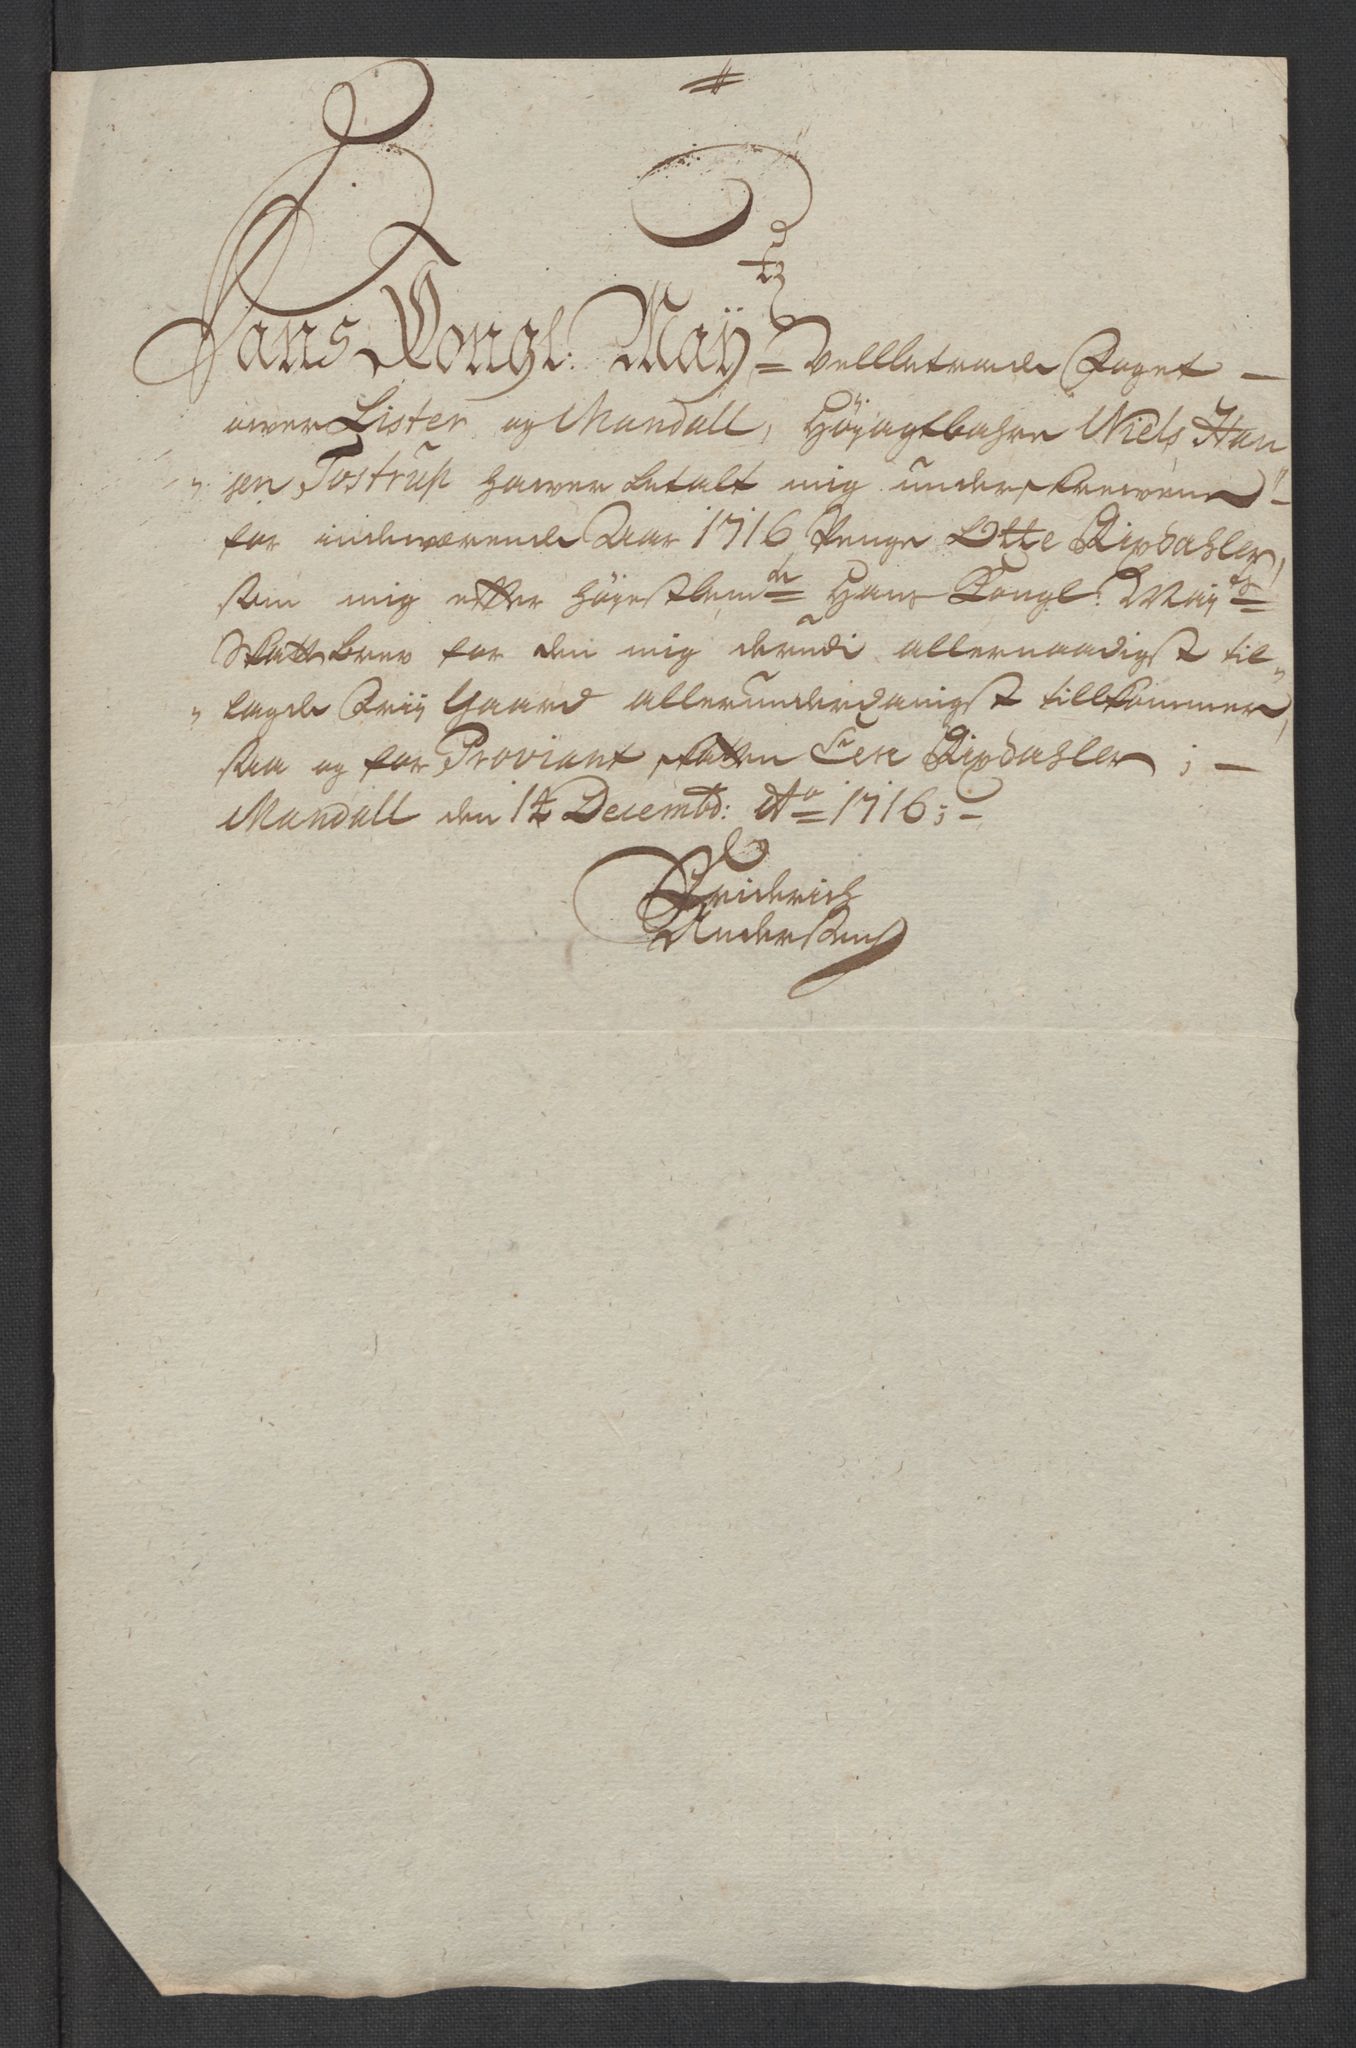 Hans Kongl: Mayts Vellbetrode Foget —
over Lister og Mandall, Høyagtbahre Niels Han
sen Tostrup hawer betalt mig underskrewene
for indewærende Aar 1716 Penge Otte Rixdahler,
som mig efter høyestbemte Hans Kongl: Mayts
Skatte brev for den mig derudi allernaadigst til
lagde Friy Gaard allerunderdanigst tillkommer,
saa og for Proviant skatten Een Rixdahler ; —
Mandall den 14 Decembr: Ao 1716 ; —
Friderich
Andersen